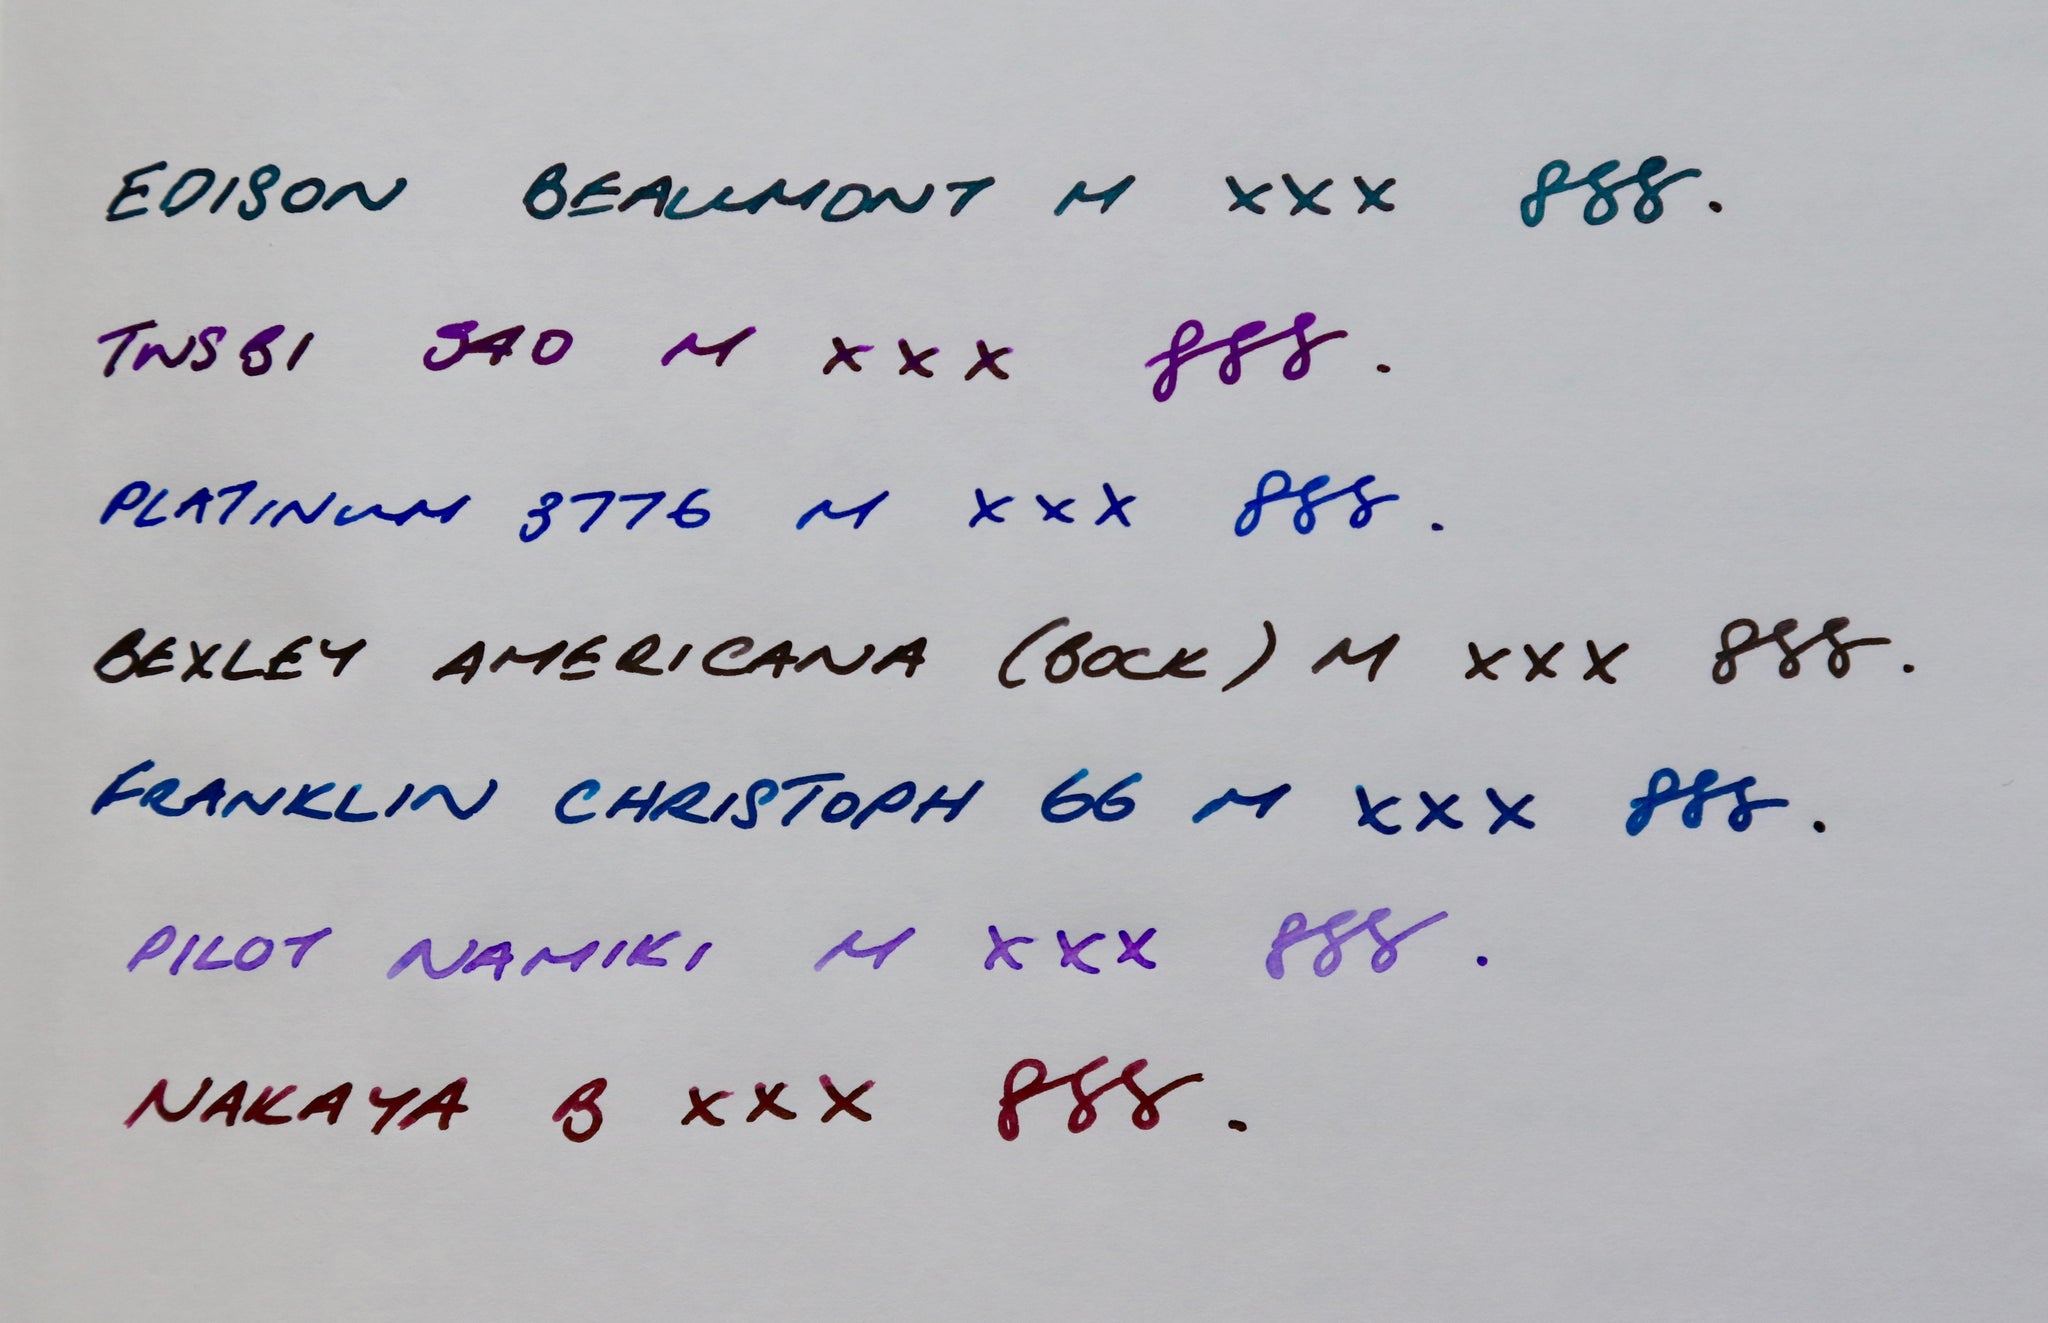 EDISON BEAUMONT M XXX ggg.
TWSBI 540 M XXX ggg.
PLATINUM 3776 M XXX ggg.
BEXLEY AMERICANA (BOCK) M XXX ggg.
FRANKLIN CHRISTOPH 66 M XXX ggg.
PILOT NAMIKI M XXX ggg.
NAKAYA B XXX ggg.